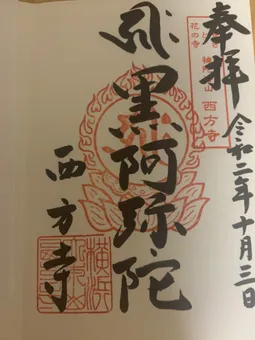 奉拝
令和二年十月三日
花の寺
西方寺
黒阿弥陀
西方寺
横浜